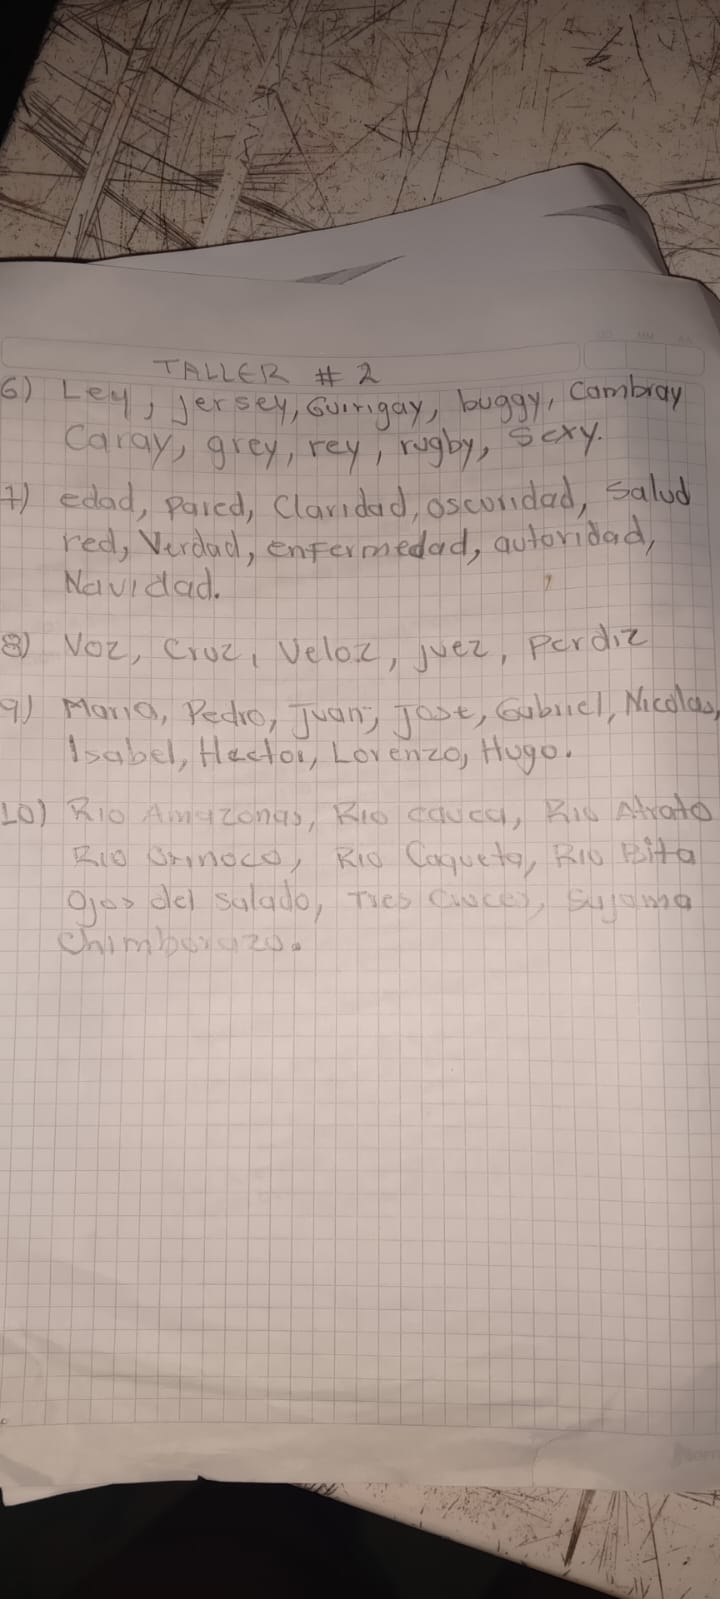 TALLER # 2
6) Ley, jersey, Guirigay, buggy, Cambray
Caray, grey, rey, rugby, Sexy.
7) edad, pared, Claridad, oscuridad, Salud
red, Verdad, enfermedad, autoridad,
Navidad.
8) Voz, Cruz, Veloz, juez, perdiz
9) Maria, Pedro, Juan, Jose, Gabriel, Nicolas,
Isabel, Hector, Lorenzo, Hugo.
10) Rio Amazonas, Rio cauca, Rio Atrato
Rio Orinoco, Rio Caqueta, Rio Bita
Ojos del salado, Tres Cruces, Sajama
Chimborazo.